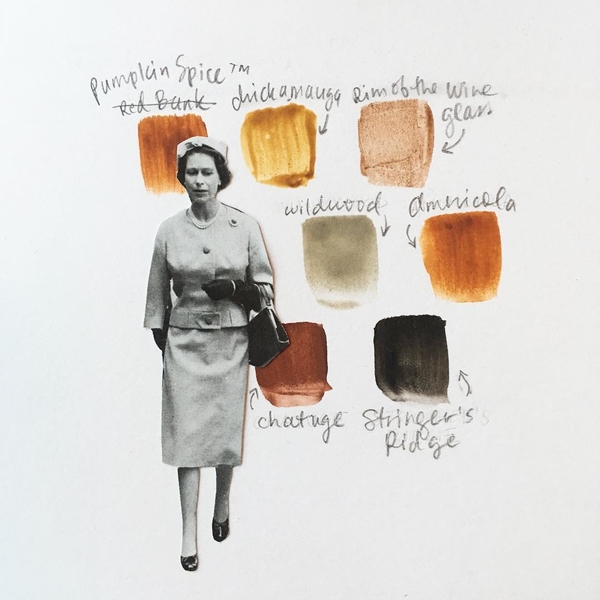 Pumpkin Spice™
Red Bank
chickamauga
rim of the wine
glass
wildwood
Amnicola
chatuge
Stringer's
Ridge